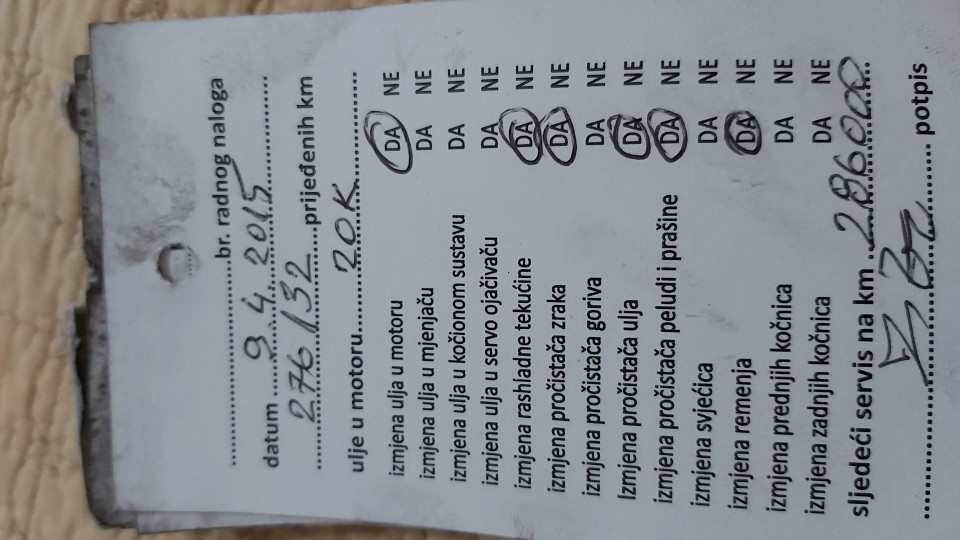 ..............................br. radnog naloga
datum ....9..4..2015..............
276 132......prijeđenih km
ulje u motoru........20K..................
izmjena ulja u motoru DA NE
izmjena ulja u mjenjaču DA NE
izmjena ulja u kočionom sustavu DA NE
izmjena ulja u servo ojačivaču DA NE
izmjena rashladne tekućine DA NE
izmjena pročistača zraka DA NE
izmjena pročistača goriva DA NE
Izmjena pročistača ulja DA NE
izmjena pročistača peludi i prašine DA NE
izmjena svjećica DA NE
izmjena remenja DA NE
izmjena prednjih kočnica DA NE
izmjena zadnjih kočnica DA NE
sljedeći servis na km ..286000..
.................................... potpis